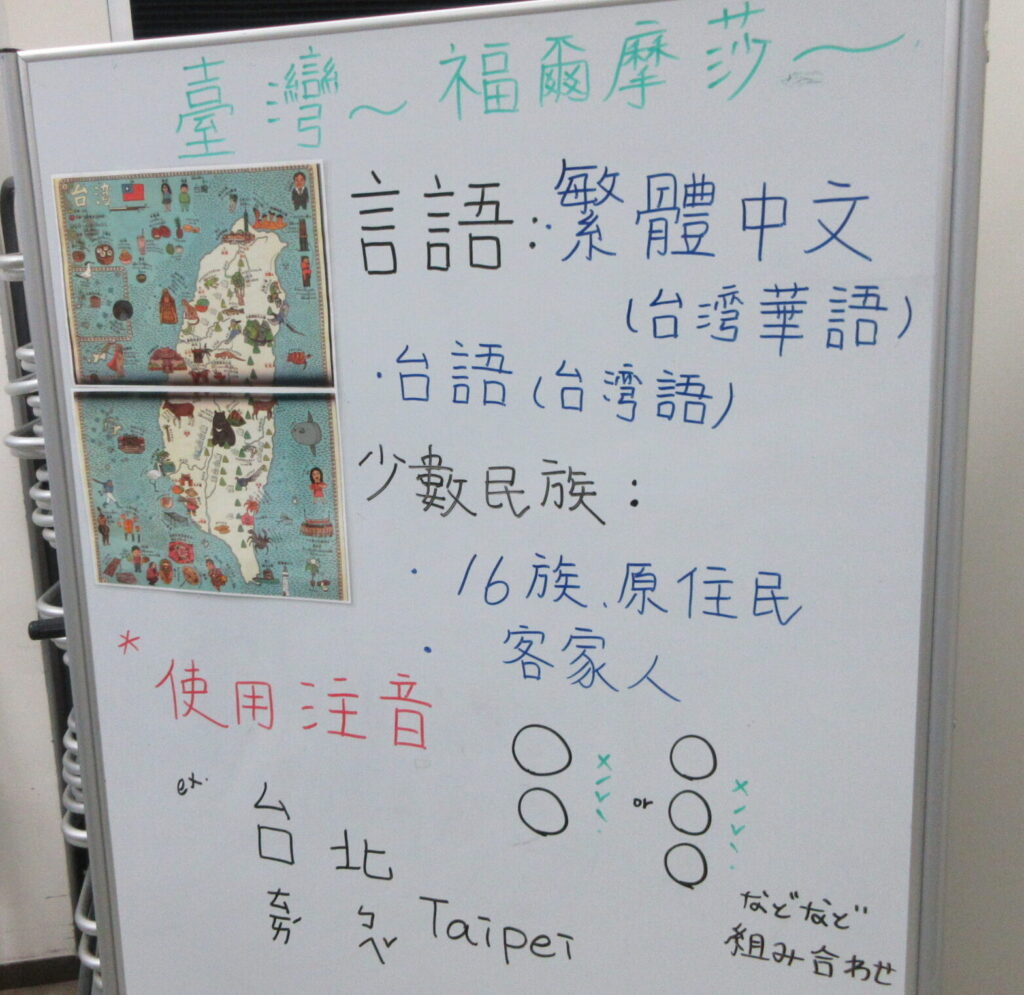 臺灣～福爾摩莎～
台湾
言語:・繁體中文
(台湾華語)
・台語(台湾語)
少數民族:
・16族、原住民
・客家人
*使用注音
ex.
台北
ㄊㄞˊ ㄅㄟˇ Taipei
or
などなど
組み合わせ